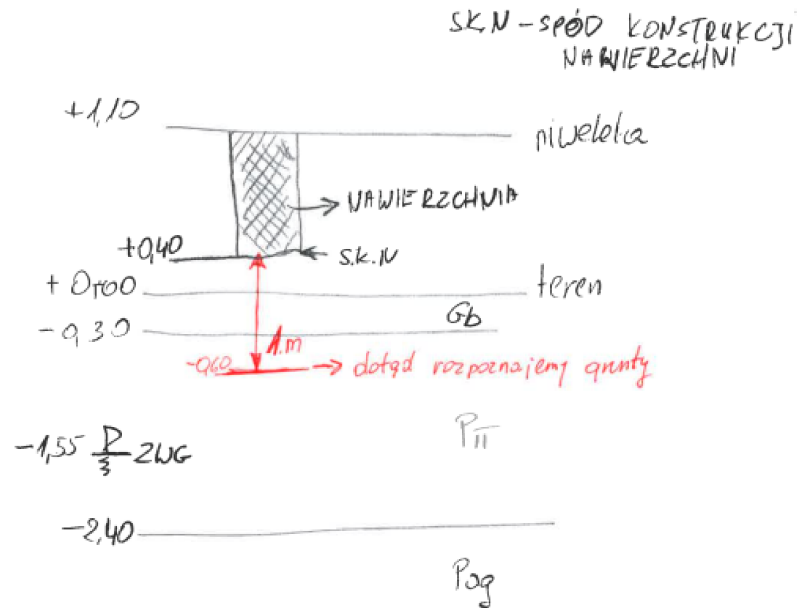 SKN - SPÓD KONSTRUKCJI
NAWIERZCHNI
+1,10
niweleta
NAWIERZCHNIA
+0,40
S.K.N
+0,00
teren
Gb
-0,30
1.m
-0,60
dotąd rozpoznajemy grunty
PII
-1,55
ZWG
-2,40
Pog